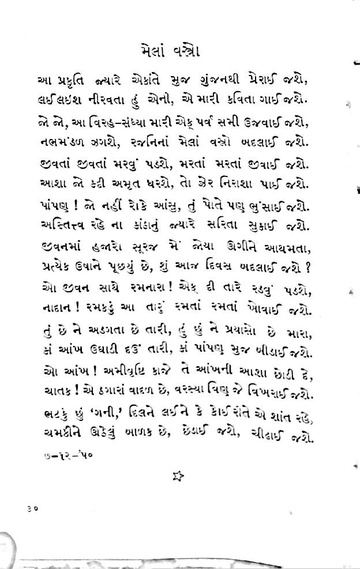 મેલાં વસ્ત્રો
આ પ્રકૃતિ જ્યારે એકાંતે મુજ ગુંજનથી પ્રેરાઈ જશે,
લઈ લઇશ નીરવતા હું એની, એ મારી કવિતા ગાઈ જશે.
જો જો, આ વિરહ-સંધ્યા મારી એક પર્વ સમી ઉજવાઈ જશે,
નભમંડળ ઝગશે, રજનિનાં મેલાં વસ્ત્રો બદલાઈ જશે.
જીવતાં જીવતાં મરવું પડશે, મરતાં મરતાં જીવાઈ જશે,
આશા જો કદી અમૃત ધરશે, તો ઝેર નિરાશા પાઈ જશે.
પાંપણ ! જો નહીં રોકે આંસુ, તું પોતે પણ ભુંસાઈ જશે,
અસ્તિત્ત્વ રહે ના કાંઠાનું જ્યારે સરિતા સુકાઈ જશે.
જીવનમાં હજારો સૂરજ મેં જોયા ઊગીને આથમતા,
પ્રત્યેક ઉષાને પૂછ્યું છે, શું આજ દિવસ બદલાઈ જશે ?
ઓ જીવન સાથે રમનારા ! એક દી તારે રડવું પડશે,
નાદાન ! રમકડું આ તારું રમતાં રમતાં ખોવાઈ જશે.
તું છે ને અડગતા છે તારી, હું છું ને પ્રયાસો છે મારા,
કાં આંખ ઉઘાડી દઉં તારી, કાં પાંપણ મુજ બીડાઈ જશે.
ઓ આંખ ! અમીવૃષ્ટિ કાજે તે આંખની આશા છોડી દે,
ચાતક ! એ ઠગારાં વાદળ છે, વરસ્યા વિણુ જે વિખરાઈ જશે.
ભટકું છું ‘ગની,’ દિલને લઈને કે કોઈ રીતે એ શાંત રહે,
ચમકીને ઊઠેલું બાળક છે, છેડાઈ જશે, ચીઢાઈ જશે.
૭-૧૨-’૫૦
૩૦